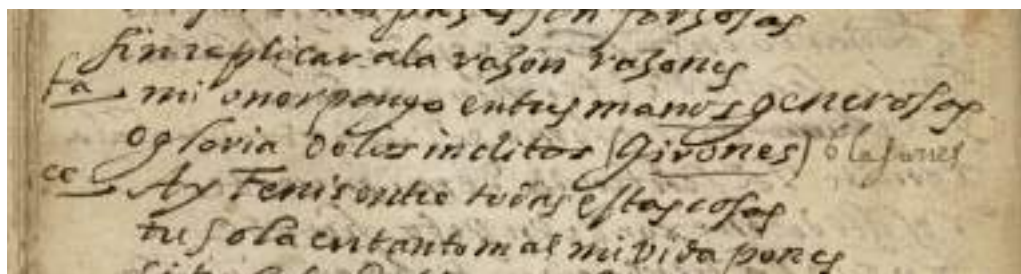 son forzosas
sin replicar a la razon razones
fa mi onor pongo en tus manos generosas
o gloria de los inclitos (Girones) o lasones
ce Ay Fenis entre todas estas cosas
tu sola en tanto mal mi vida pones